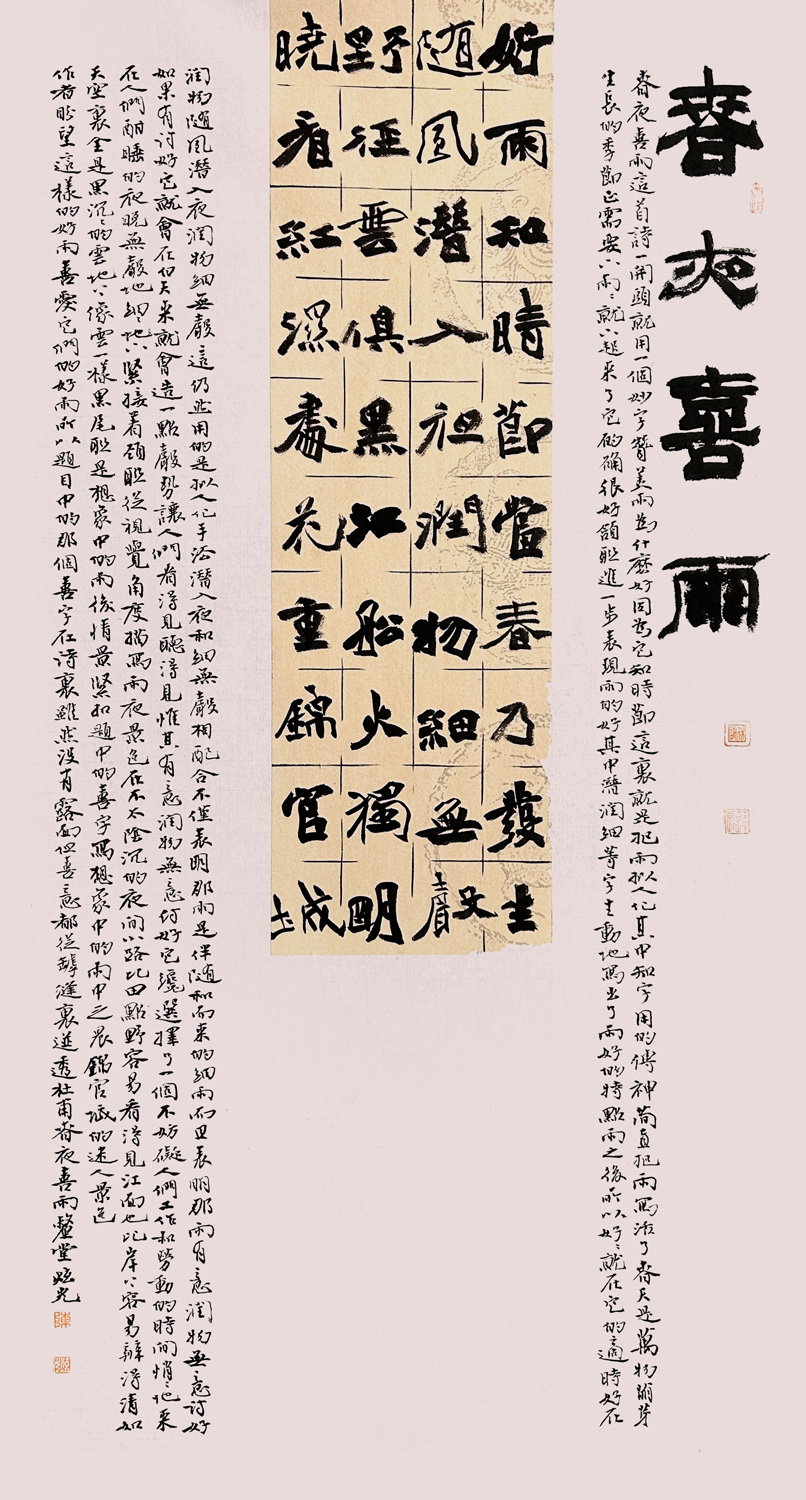 春夜喜雨
春夜喜雨這首詩一開頭就用一個妙字贊美雨為什麼好因為它知時節這裏就是把雨拟人化其中知字用的傳神简直把雨寫活了春天是萬物萌芽
生長的季節正需要下雨〻就下起来了它的确很好頷联進一步表現雨的好其中潛潤細等字生動地寫出了雨好的特點雨之後所以好〻就在它的適時好在
好雨知時節當春乃發生
随風潛入夜潤物細無聲
野徑雲俱黑江船火獨明
曉看紅濕處花重錦官城
潤物随風潛入夜潤物細無聲這仍然用的是拟人化手法潛入夜和細無聲相配合不僅表明那雨是伴随和而来的細雨而且表明那雨有意潤物無意讨好
如果有讨好它就會在白天来就會造一點聲势讓人們看得見聽得見惟其有意潤物無意讨好它纔選擇了一個不妨礙人們工作和勞動的時间悄〻地来
在人們酣睡的夜晚無聲地細〻地下緊接着頸联從視覺角度描寫雨夜景色在不太陰沉的夜间小路比田點野容易看得見江面也比岸上容易辨得清如
天空裏全是黑沉〻的雲地上像雲一樣黑尾联是想象中的雨後情景緊扣題中的喜字寫想象中的雨中之晨錦官城的迷人景色
作者盼望這樣的好雨喜爱它們的好雨所以題目中的那個喜字在詩裏雖然没有露面但喜意都從罅縫裏迸透杜甫春夜喜雨鳌堂炫光